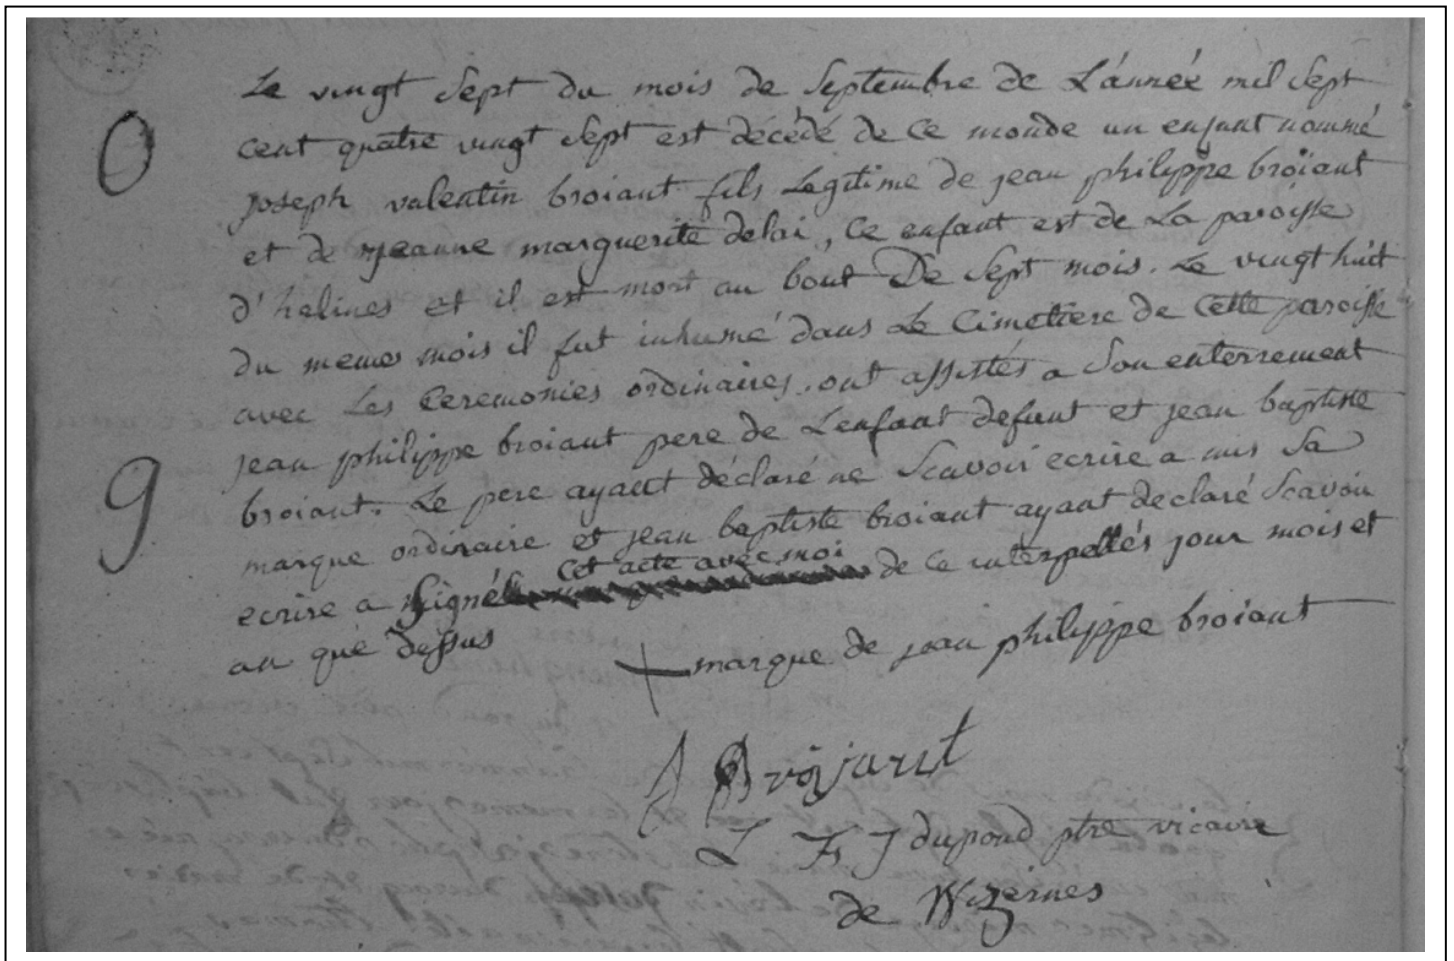 Le vingt sept du mois de septembre de L'année mil sept
cent quatre vingt sept est décédé de ce monde un enfant nommé
joseph valentin broiant fils Legitime de jean philippe broïant
et de jeanne marguerite delai, ce enfant est de La paroisse
d'helines et il est mort au bout De sept mois. Le vingt huit
du meme mois il fut inhumé dans Le Cimetiere de cette paroisse
avec Les Ceremonies ordinaires. ont assistés a son enterrement
jean philippe broiant pere de L'enfant defunt et jean baptiste
broiant. Le pere ayant déclaré ne scavoir ecrire a mis sa
marque ordinaire et jean baptiste broiant ayant declaré scavoir
ecrire a signé cet acte avec moi de ce interpellés jour mois et
an que dessus
marque de jean philippe broiant
Broÿant
L F J dupond ptre vicaire
de Wizernes
O
9